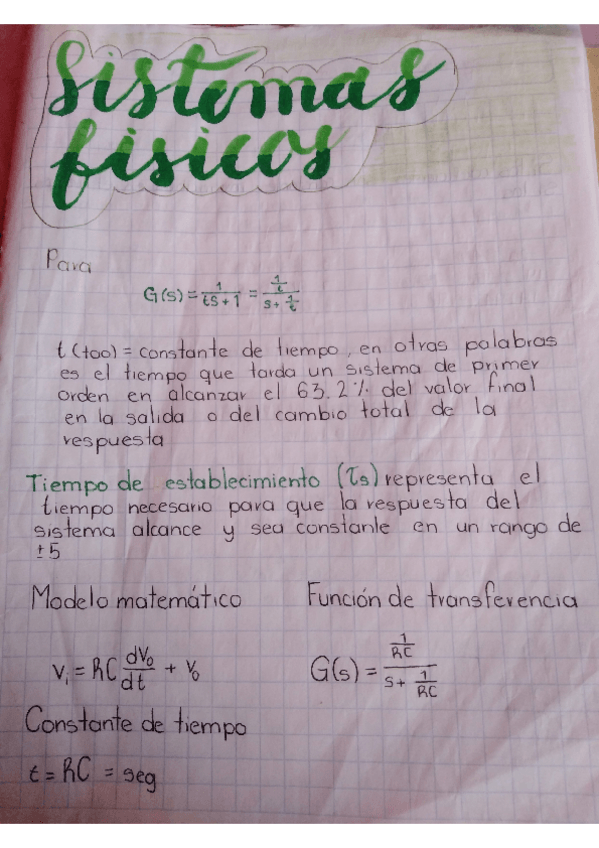 Sistemas
físicos
Para
G(s) = 1/(ts + 1) = (1/t)/(s + 1/t)
t (tao) = constante de tiempo, en otras palabras
es el tiempo que tarda un sistema de primer
orden en alcanzar el 63.2% del valor final
en la salida o del cambio total de la
respuesta
Tiempo de establecimiento (τs) representa el
tiempo necesario para que la respuesta del
sistema alcance y sea constante en un rango de
±5
Modelo matemático
Función de transferencia
Vi = RC dVo/dt + Vo
G(s) = (1/RC)/(s + 1/RC)
Constante de tiempo
t = RC = seg